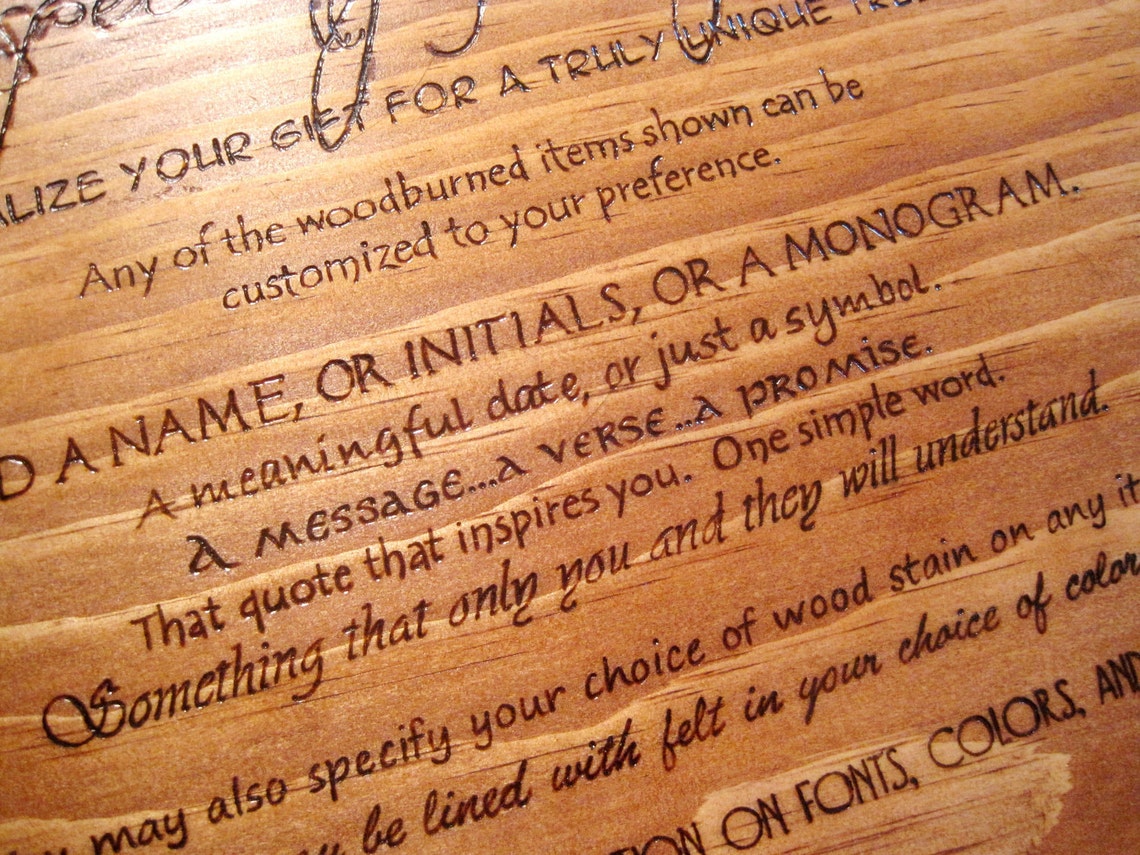 YOUR GIFT FOR A TRULY UNIQUE
Any of the woodburned items shown can be
customized to your preference.
A NAME, OR INITIALS, OR A MONOGRAM.
A meaningful date, or just a symbol.
a message...a verse...a promise.
That quote that inspires you. One simple word.
Something that only you and they will understand.
may also specify your choice of wood stain on any
be lined with felt in your choice of color
ON FONTS, COLORS, AND